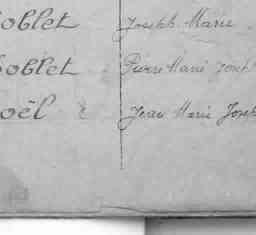 oblet Joseph Marie
oblet Pierre Marie Joseph
oël Jean Marie Josep